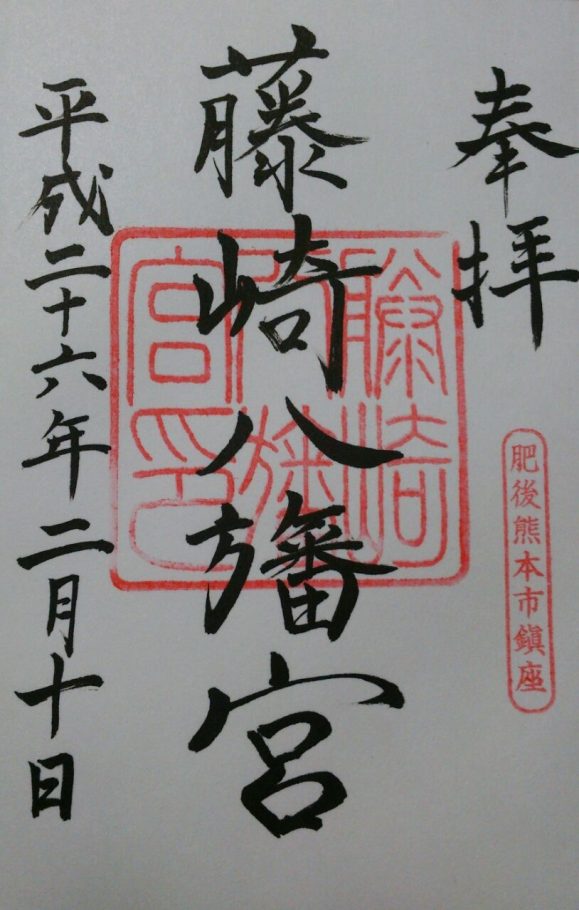 奉拝
肥後熊本市鎮座
藤崎八旛宮
藤崎八旛宮印
平成二十六年二月十日